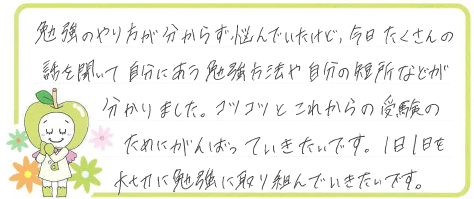 勉強のやり方が分からず、悩んでいたけど、今日たくさんの
話を聞いて自分にあう勉強方法や自分の短所などが
分かりました。コツコツとこれからの受験の
ためにがんばっていきたいです。1日1日を
大切に勉強に取り組んでいきたいです。